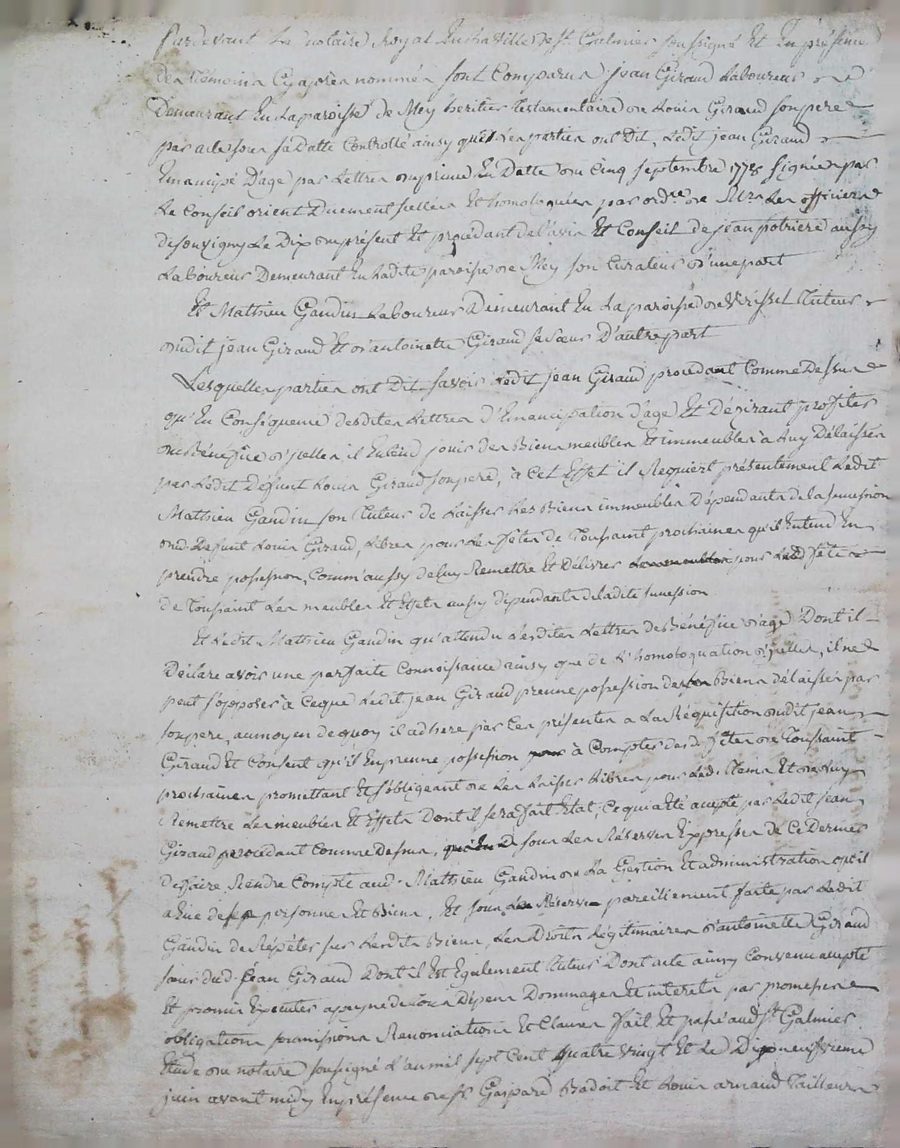 Pardevant Le notaire Royal En la Ville de St. Galmier soussigné Et En présence
des temoins Cy après nommés sont Comparus jean Giraud Laboureur
Demeurant En La paroisse de Mey heritier testamentaire de Louis Giraud son pere
par acte sous sa datte Controllé ainsy que les parties ont Dit, Ledit jean Giraud
Emancipé D'age par Lettres du prince En Datte du Cinq septembre 1778 signées par
Le Conseil Duement scellées Et homologuées par ordce de Mrs Les officiers
de souvigny Le Dix du présent Et procédant de l'avis Et Conseil de jean potriere aussy
Laboureur Demeurant En Ladite paroisse de Mey son Curateur d'une part
Et Mathieu Gaudin Laboureur Demeurant En La paroisse de tuteur
dudit jean Giraud Et d'antoinette Giraud sa sœur D'autre part
Lesquelles parties ont Dit savoir Ledit jean Giraud procédant Comme Dessus
qu'En Conséquence desdites Lettres d'Emancipation d'age Et Désirant profiter
du Bénéfice d'ycelles il Entend jouir des Biens meubles Et immeubles à Luy Délaissés
par Ledit Défunt Louis Giraud son pere, à Cet Effet il Requiert présentement Ledit
Mathieu Gaudin son tuteur de Laisser Les Biens immeubles Dépendants de la succession
dud. Defunt Louis Giraud, Libres pour Les fêtes de Toussaint prochaines qu'il Entend En
prendre possession, Comm'aussy de Luy Remettre Et Délivrer pour Lesd. fêtes
de Toussaint Les meubles Et Effets aussy dépendants de ladite succession
Et Ledit Mathieu Gaudin qu'attendu Lesdites Lettres de Bénéfice d'age Dont il
Déclare avoir une parfaite Connoissance ainsy que de L'homologuation d'ycelles, il ne
peut s'opposer à Ceque Ledit jean Giraud prenne possession des Biens délaissés par
son pere, au moyen de quoy il adhere par Ces présentes a La Réquisition dudit jean
Giraud Et Consent qu'il En prenne possession à Compter desd. fêtes de Toussaint
prochaines promettant Et s'obligeant de Les Laisser Libres pour Ledit tems Et de Luy
Remettre Les meubles Et Effets Dont il sera fait Etat, Ce qui a Eté accepté par Ledit jean
Giraud procédant Comme Dessus, sous Les Réserves Expresses de Ce Dernier
de faire Rendre Compte aud. Mathieu Gaudin de La Gestion Et administration qu'il
a Eüe de sa personne Et Biens, Et sous La Réserve pareillement faite par Ledit
Gaudin de Répéter sur Lesdits Biens, Les Droits Légitimaires d'antoinette Giraud
sœur dud. jean Giraud Dont il Est Egalement tuteur Dont acte ainsy Convenu accepté
Et promis Exécuter a peyne de tous Dépens Dommages Et interets par promesses
obligations soumissions Renonciations Et Clauses fait Et passé aud. St. Galmier
Etude du notaire soussigné L'an mil sept Cent quatre vingt Et Le Dixneuvieme
juin avant midy En présence de Sr. Gaspard Badoit Et Louis arnaud Tailleurs